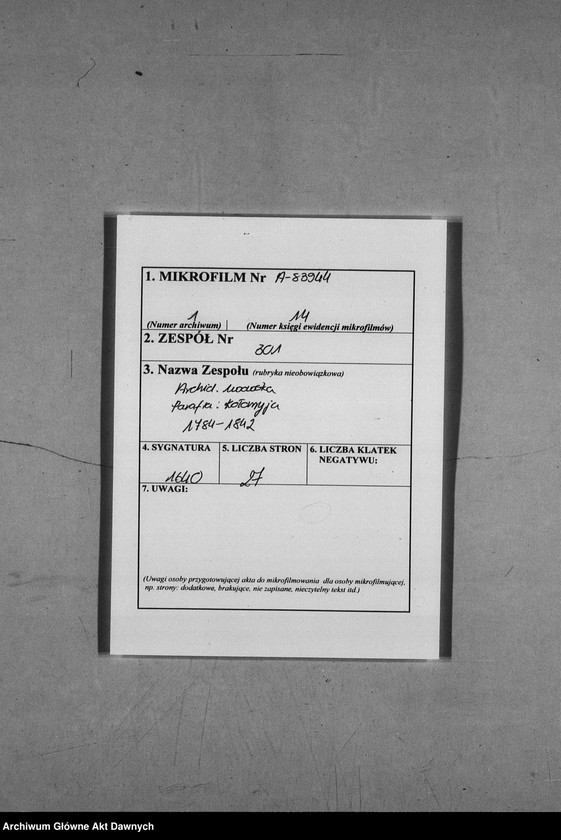 1. MIKROFILM Nr A-83944
1 14
(Numer archiwum) (Numer księgi ewidencji mikrofilmów)
2. ZESPÓŁ Nr
301
3. Nazwa Zespołu (rubryka nieobowiązkowa)
Archid. lwowska
Parafia: Kołomyja
1784-1842
4. SYGNATURA 5. LICZBA STRON 6. LICZBA KLATEK
NEGATYWU:
1640 27
7. UWAGI:
(Uwagi osoby przygotowującej akta do mikrofilmowania dla osoby mikrofilmującej,
np. strony: dodatkowe, brakujące, nie zapisane, nieczytelny tekst itd.)
Archiwum Główne Akt Dawnych